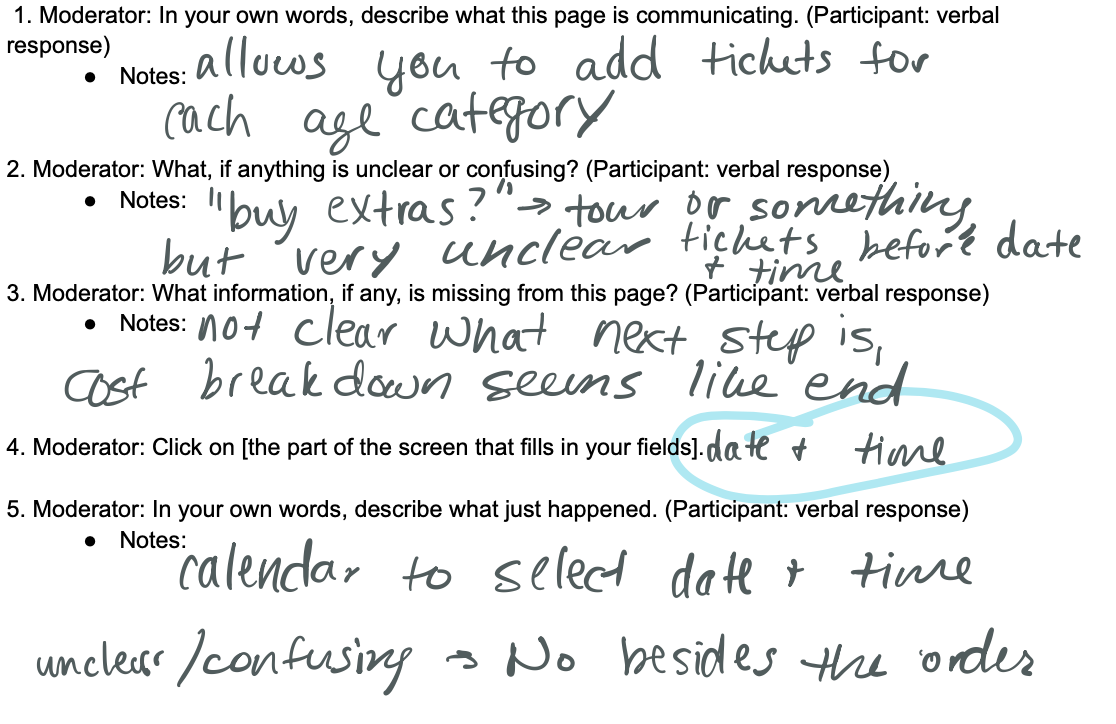 1. Moderator: In your own words, describe what this page is communicating. (Participant: verbal
response)
• Notes: allows you to add tickets for
each age category
2. Moderator: What, if anything is unclear or confusing? (Participant: verbal response)
• Notes: "buy extras?" → tour or something
but very unclear tickets before date
+ time
3. Moderator: What information, if any, is missing from this page? (Participant: verbal response)
• Notes: not clear what next step is,
cost breakdown seems like end
4. Moderator: Click on [the part of the screen that fills in your fields]. date + time
5. Moderator: In your own words, describe what just happened. (Participant: verbal response)
• Notes:
calendar to select date + time
unclear/confusing → No besides the order